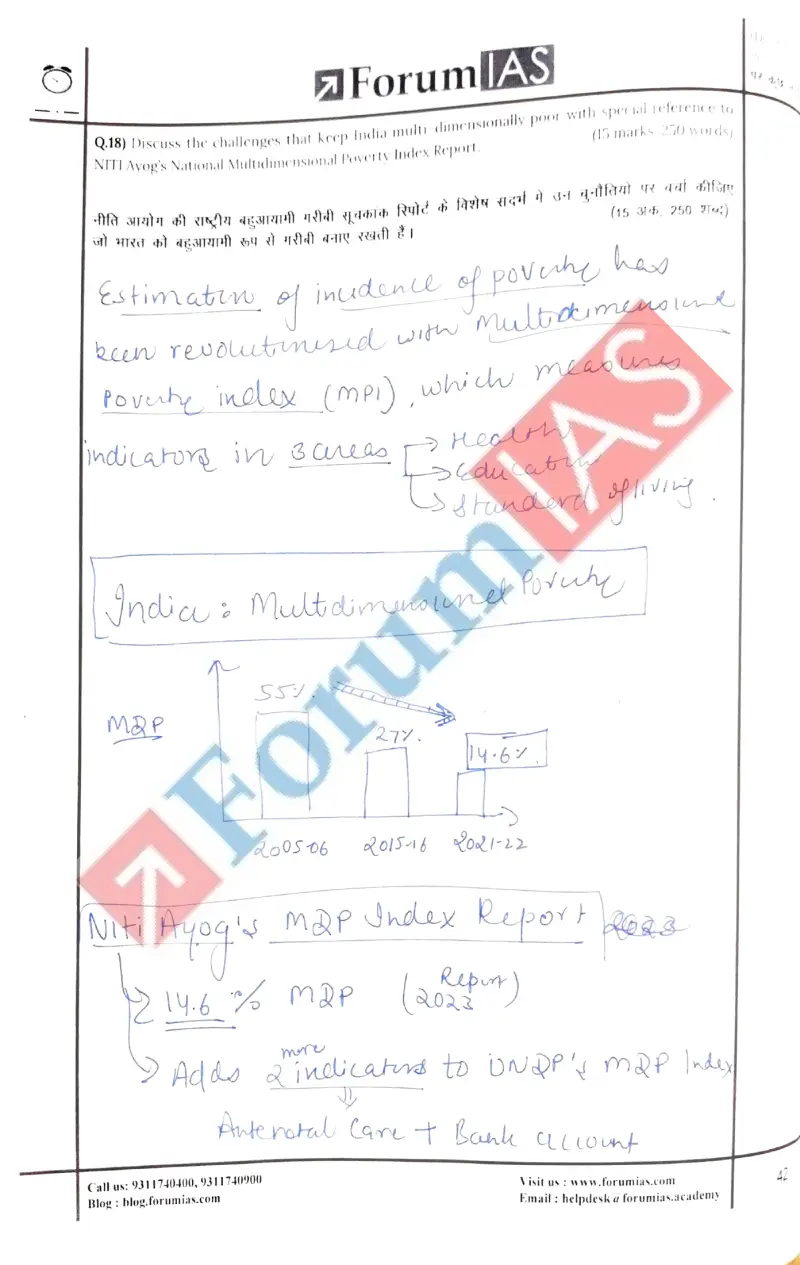 ForumIAS
Q.18) Discuss the challenges that keep India multi-dimensionally poor with special reference to
NITI Ayog's National Multidimensional Poverty Index Report. (15 marks, 250 words)
नीति आयोग की राष्ट्रीय बहुआयामी गरीबी सूचकांक रिपोर्ट के विशेष संदर्भ में उन चुनौतियों पर चर्चा कीजिए
जो भारत को बहुआयामी रूप से गरीबी बनाए रखती हैं। (15 अंक, 250 शब्द)
Estimation of incidence of poverty has
been revolutionised with Multidimensional
Poverty index (MPI), which measures
indicators in 3 areas → Health
→ Education
→ Standard of living.
India: Multidimensional Poverty
55%.
MDP
27%.
14.6%.
2005-06 2015-16 2021-22
Niti Ayog's MDP Index Report 2023
14.6 % MDP (2023 Report)
Adds 2 more indicators to UNDP's MDP Index
Antenatal Care + Bank account
ForumIAS
Call us: 9311740400, 9311740900
Blog : blog.forumias.com
Visit us : www.forumias.com
Email : helpdesk@forumias.academy
42